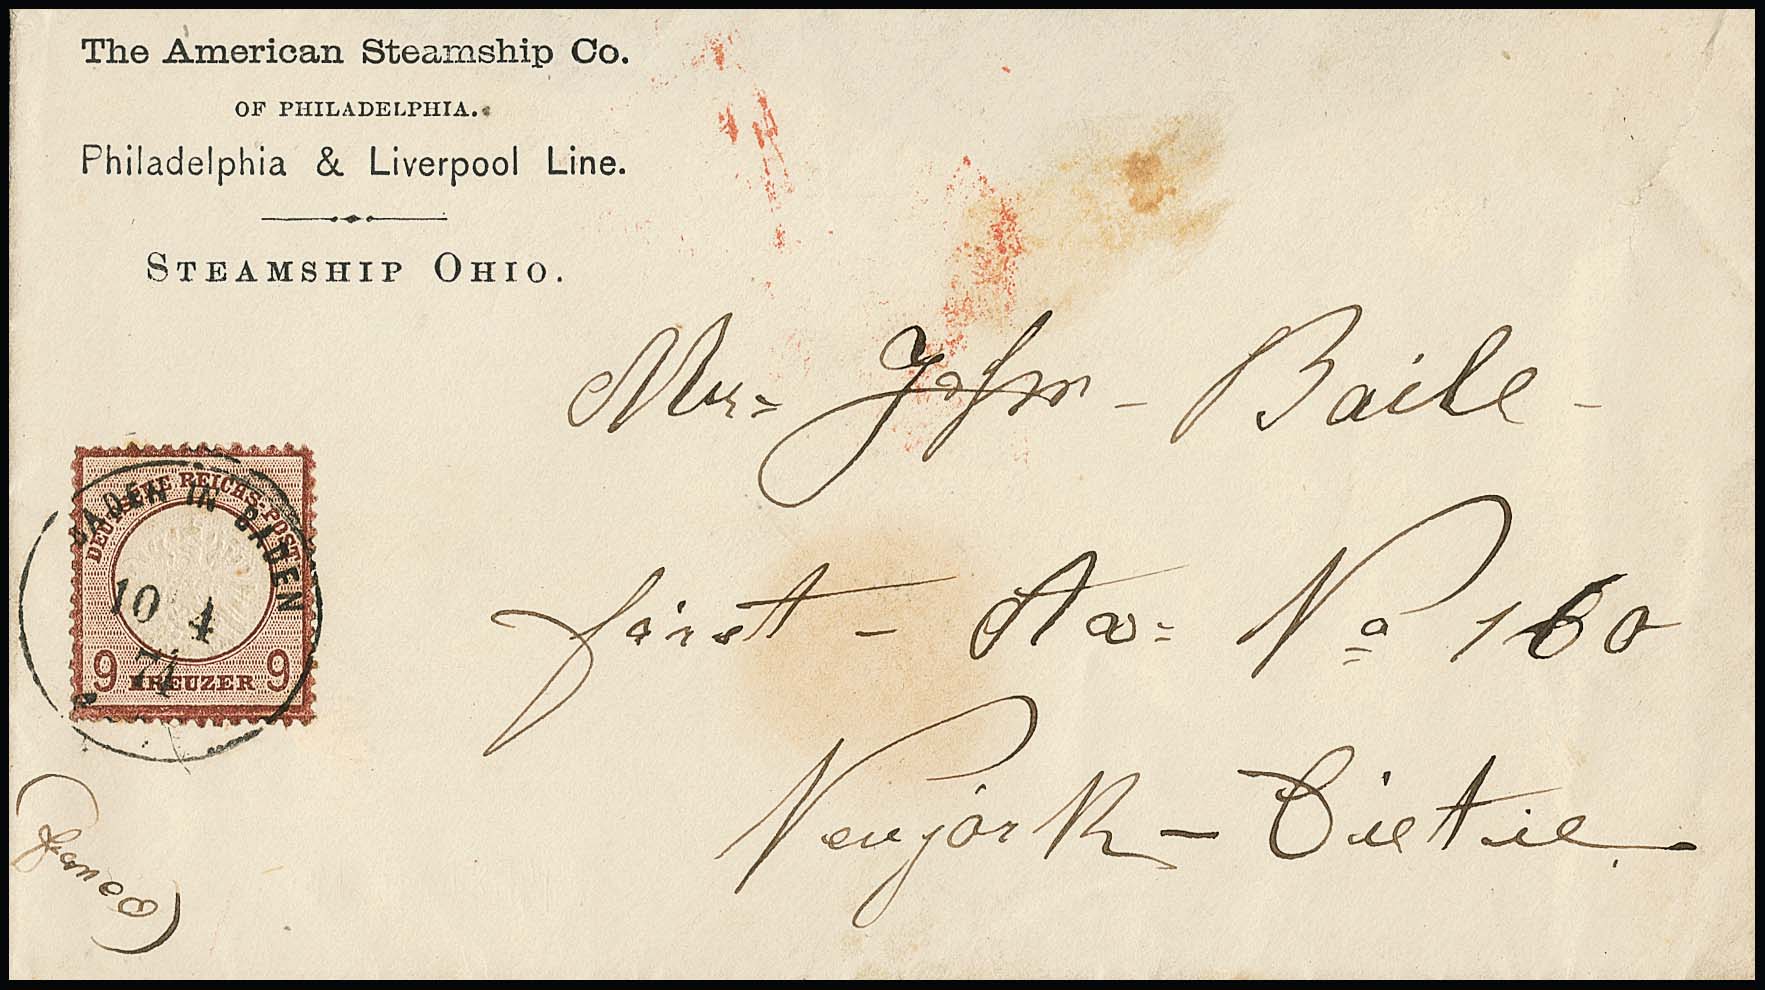 The American Steamship Co.
OF PHILADELPHIA.
Philadelphia & Liverpool Line.
STEAMSHIP OHIO.
Mr= John - Baile -
first - Av= No 160
Newjork - Cietie
DEUTSCHE REICHS-POST
9 KREUZER 9
BADEN IN BADEN
10 4
74